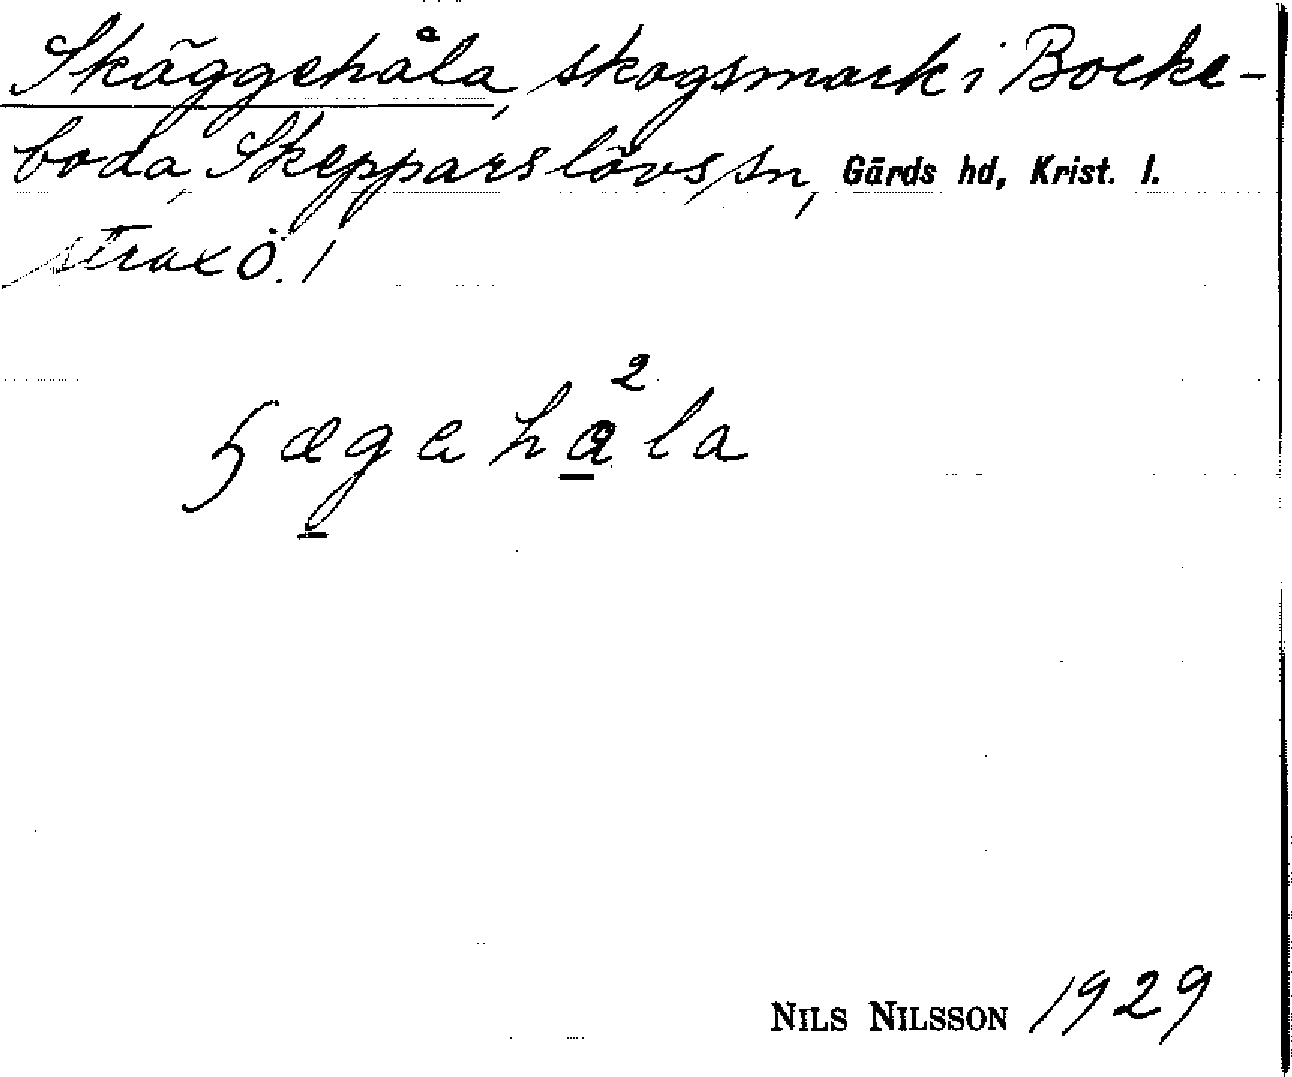 Skäggehåla, skogsmark i Bocke-
boda, Skepparslövs sn, Gärds hd, Krist. l.
strax ö. /
2
ɧægehåla
NILS NILSSON 1929